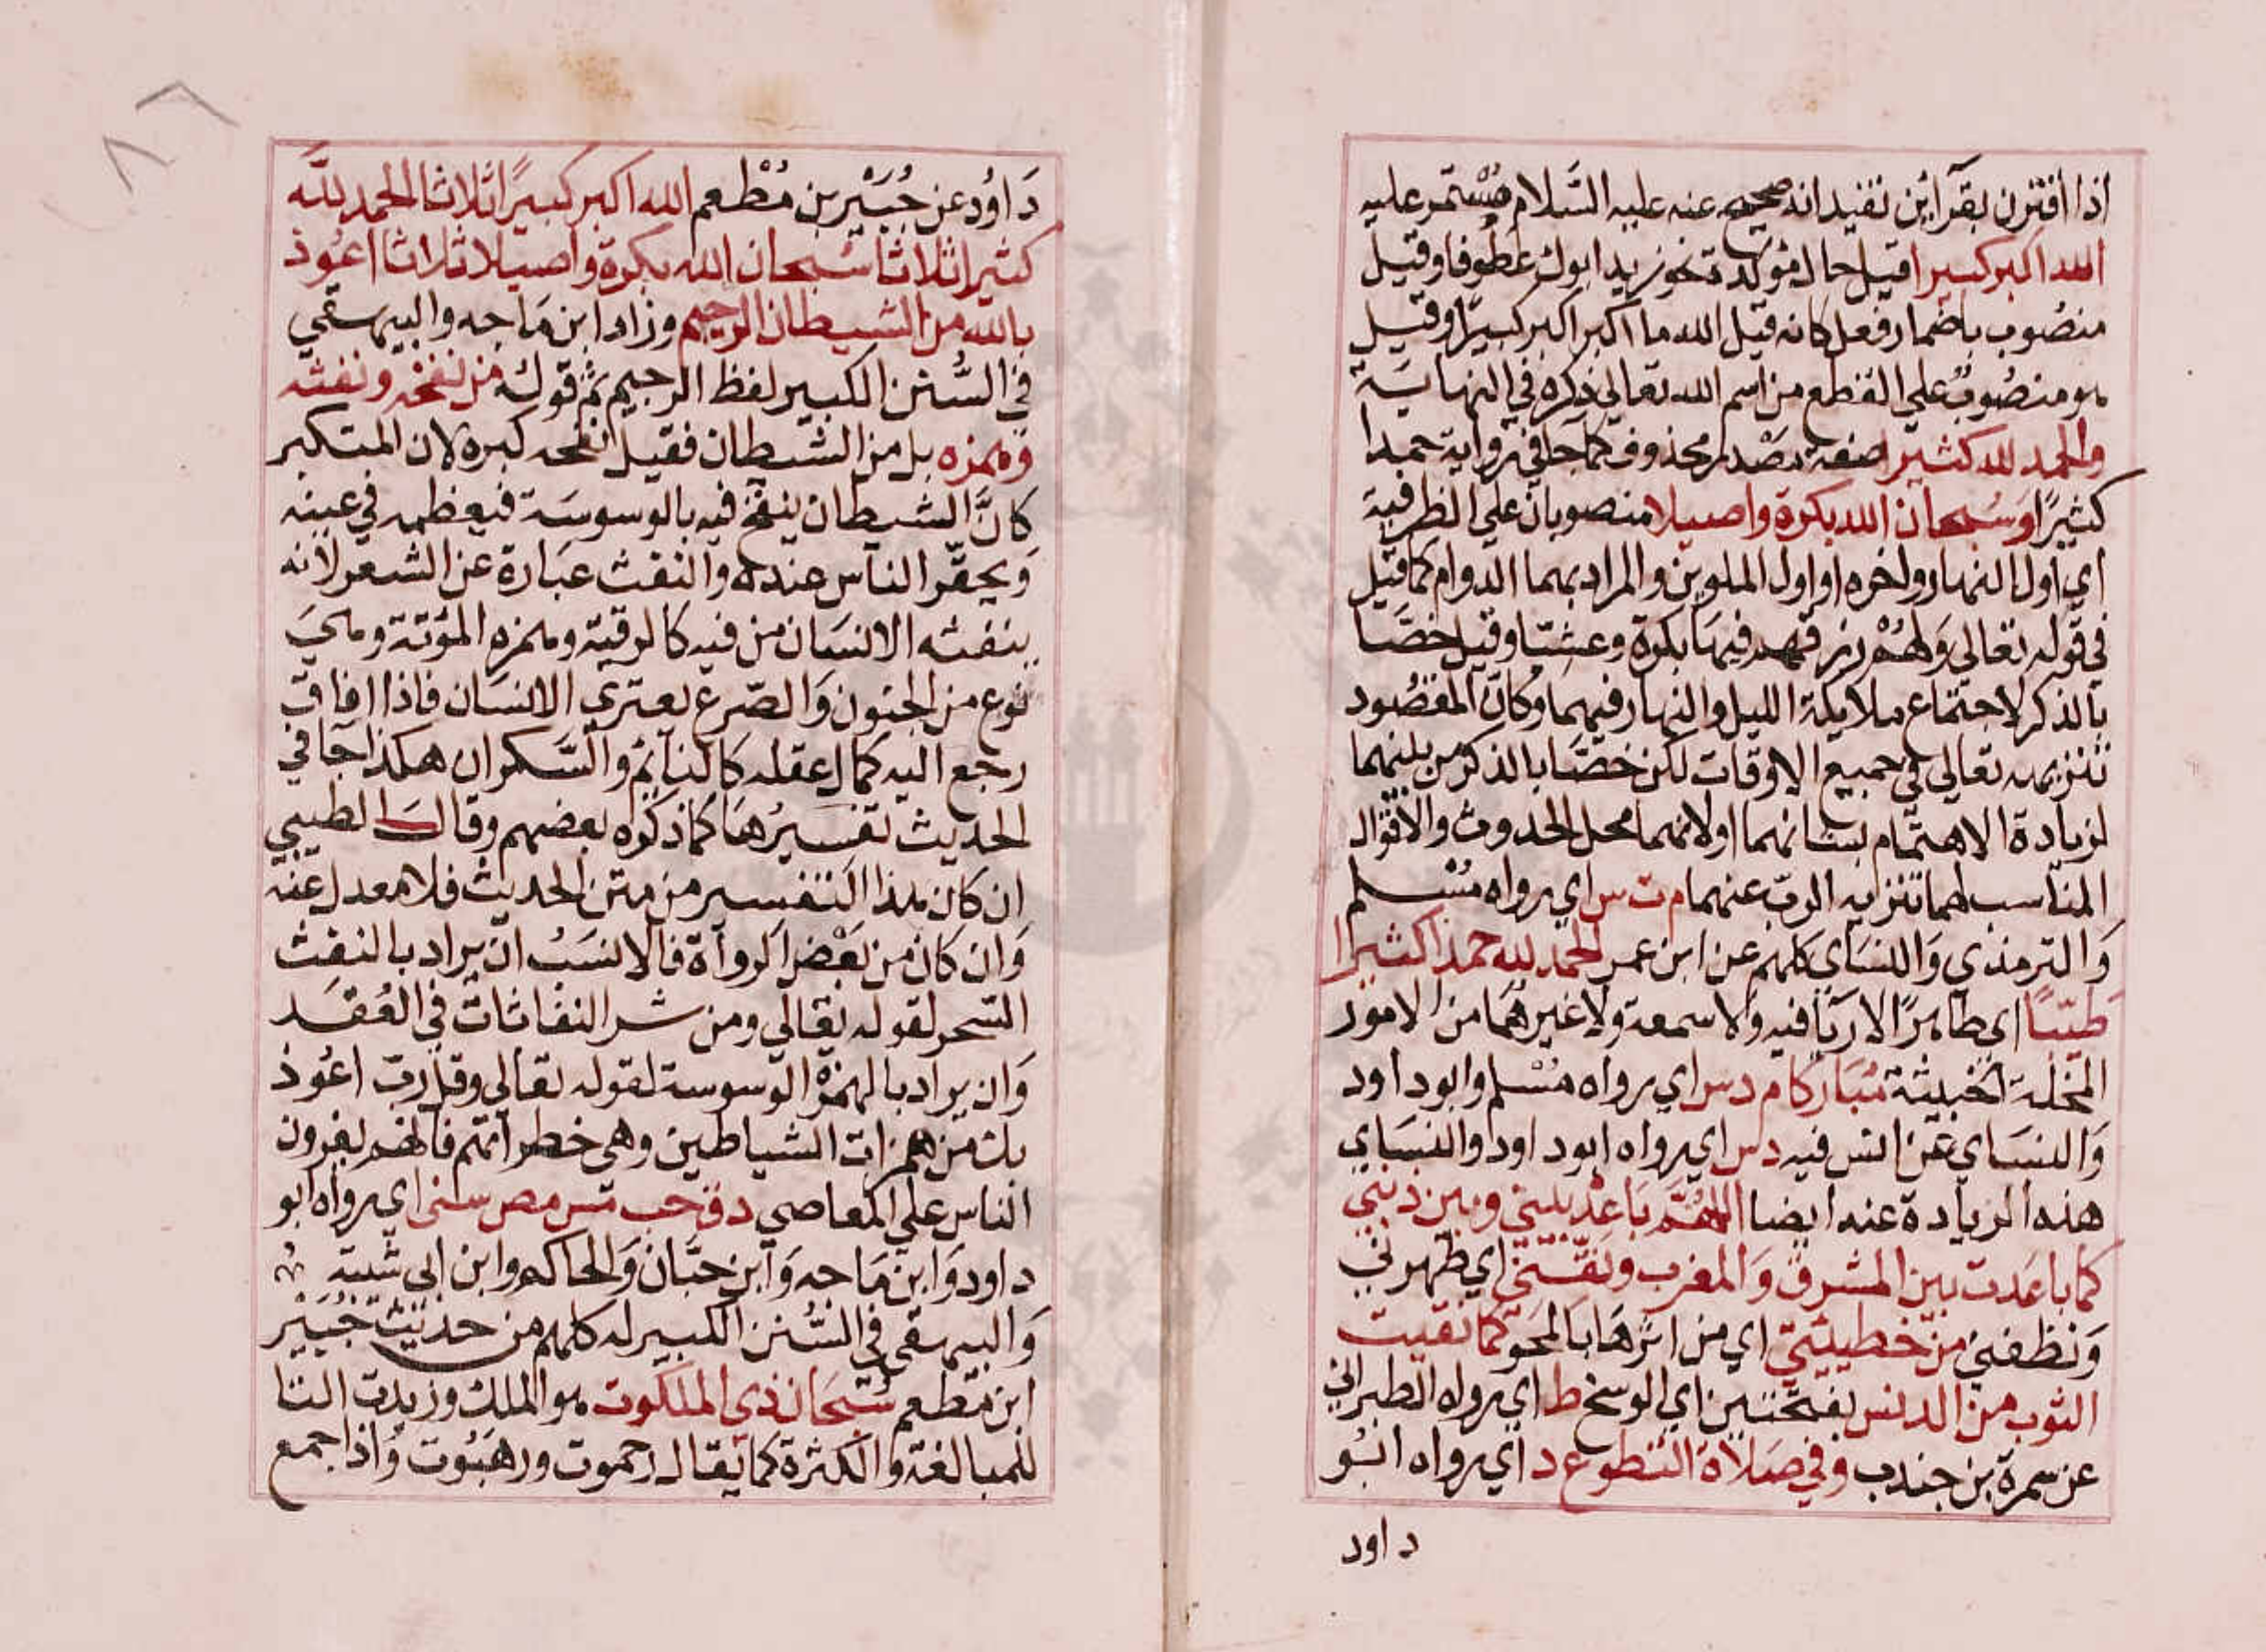 اذا اقترن بقرآئن تفيد انه صحيح عنه عليه السَّلام مُسْتمر عليه
الله اكبر كبيرا قيل حال مؤكدة نحو زيد ابوك عطوفا وقيل
منصُوب باضمار فعل كانه قيل الله ما اكبر اكبر كبيرًا وقيل
هو منصُوب علي القطع من اسم الله تعالي ذكره في النهاية
والحمد لله كثيرا صفة مصْدر محذوف كما جا في رواية حمدا
كثيرًا وَسُبحان الله بكرة واصيلا منصوبان علي الظرفية
اي اول النهار واخره او اول الملوين والمراد بهما الدوام كما قيل
في قوله تعالي وَلهُمْ رزقهم فيهَا بكرة وعشيّا وقيل خصَّا
بالذكر لاجتماع ملايكة الليل والنهار فيهما وكان المقصُود
تنزيهه تعالي في جميع الاوقات لكن خصَّا بالذكر من بينهما
لزيادة الاهتمام بشانهما اولانهما محل الحدوث والاقوال
المناسب لهما تنزيه الرب عنهما م ت س اي رواه مُسْلم
وَالترمذي وَالنسَاي كلهم عن ابن عمر الحمد لله حمدًا كثيرا
طيّبًا اي طاهرًا لا ريَا فيه وَلا سمعة ولا غيرهمَا من الامور
المخلة الخبيثة مُبَاركا م د س اي رواه مُسْلم وابود اود
وَالنسَاي عَن انس فيه د س اي رواه ابود اود والنسَاي
هذه الزيادة عنه ايضا اللهُمَّ بَاعِدْ بيني وبين ذنبي
كما باعَدت بين المشرق وَالمغرب وَنقّني اي طهرني
وَنظفني من خطيئتي اي من اثرهَا بالمَحو كما نقيت
الثوب من الدنس بفتحتين اي الوسخ ط اي رواه الطبراني
عن سمرة بن جندب وفي صَلاة التطوع د اي رواه ابُو
د اود
دَاوُد عن جُبَيْر بن مُطْعم الله اكبر كبيرًا ثلاثا الحمد لله
كثيرا ثلاثا سُبحان الله بكرة واصيلا ثلاثا اعُوذ
بالله من الشيطان الرجيم وزاد ابن مَاجه والبيهقي
في السُّنن الكبير لفظ الرجيم ثم قوله من نفخه ونفثه
وَهمزه بل من الشيطان فقيل نفخه كبره لان المتكبر
كانَّ الشيطان ينفخ فيه بالوسوسَة فيعظمه في عينه
وَيحقّر الناس عنده والنفث عبَارة عن الشعر لانه
ينفثه الانسَان من فيه كالرقية وهمزه المؤتة وهيَ
نوع من الجنون وَالصّرع يعتري الانسَان فاذا افاق
رجع اليه كمال عقله كالنايم والسَّكران هكذا جَا في
الحديث تفسيرُهَا كما ذكره بعضهم وقال الطيبي
ان كان هذا التفسير من متن الحديث فلا معدل عنه
وَان كان من بَعْض الروآة فالانسَبُ ان يراد بالنفث
السّحر لقوله تعَالي ومن شر النفاثات في العُقَد
وَان يراد بالهمزْ الوسوسة لقوله تعَالي وقل رب اعُوذ
بك مَن همزات الشياطين وهي خطراتهم فانهم يغرون
الناس علي المعَاصي د ق حب مس مص سني اي رواه ابو
داود وَابن مَاجه وَابن حبّان وَالحاكم وابن ابي شيبة
وَالبيهقي في السُّنن الكبير له كلهم من حديث جُبَيْر
ابن مطعم سُبحَان ذي الملكوت هو الملك وزيدت التا
للمبالغة والكثرة كما يقال رحموت ورهبُوت وَاذا جمع